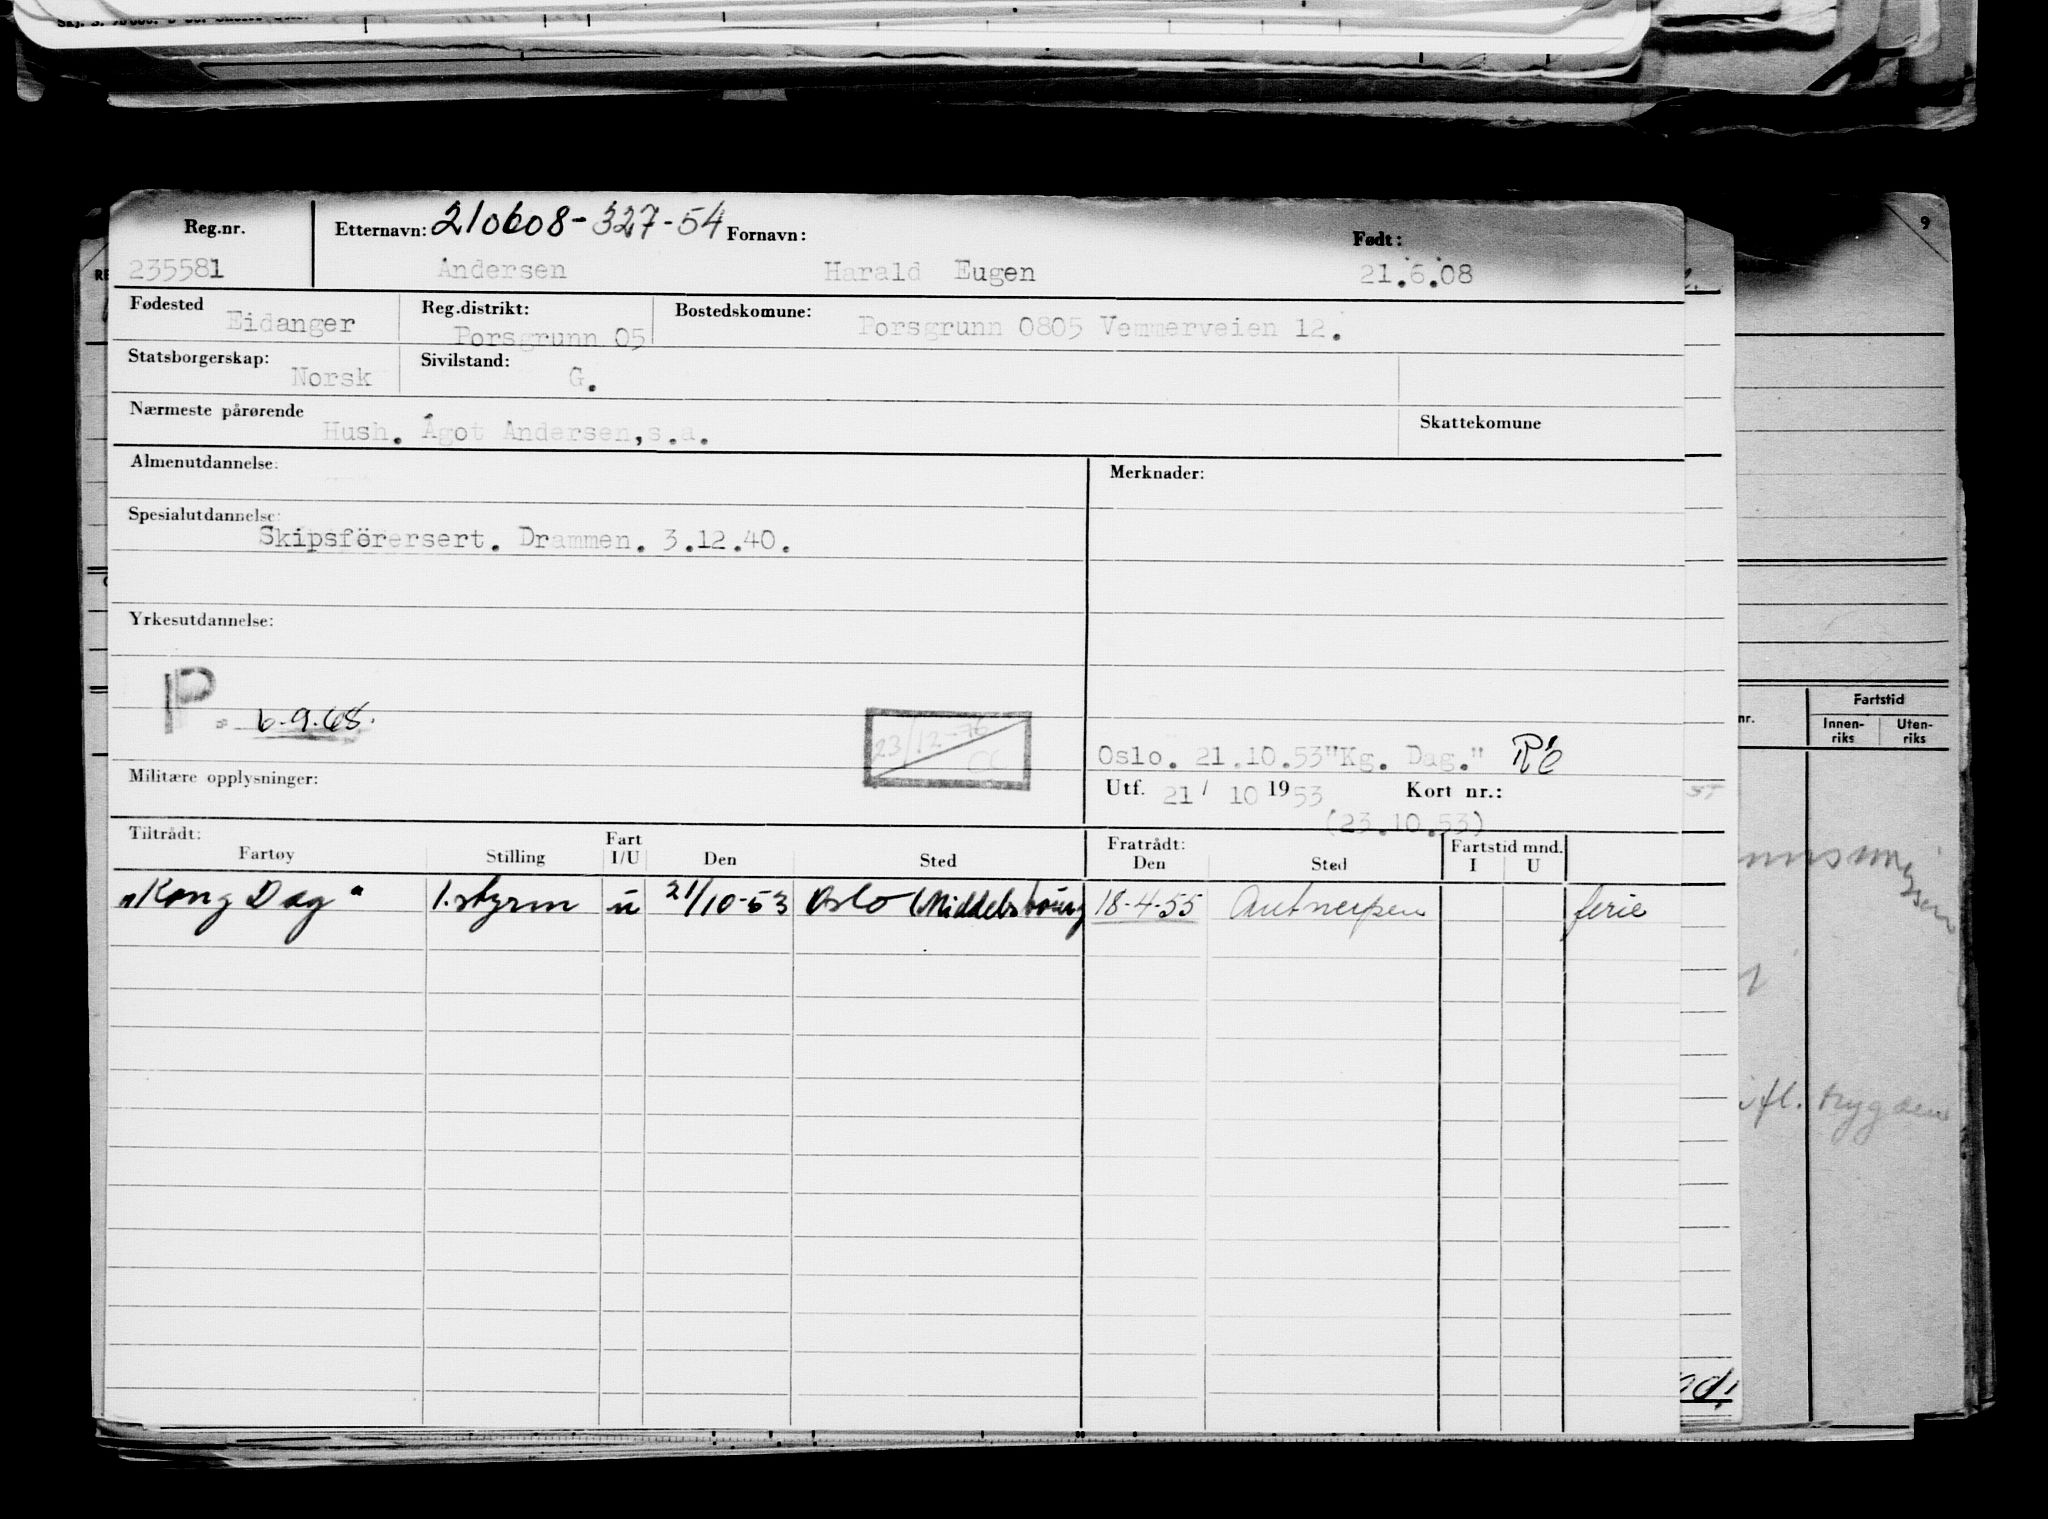 Reg.nr. Etternavn: 210608-327-54 Fornavn: Født:
235581 Andersen Harald Eugen 21.6.08
Fødested Eidanger Reg.distrikt: Porsgrunn 05 Bostedskomune: Porsgrunn 0805 Vemmerveien 12.
Statsborgerskap: Norsk Sivilstand: G.
Nærmeste pårørende Hush. Ågot Andersen, s.a. Skattekomune
Almenutdannelse: Merknader:
Spesialutdannelse: Skipsförersert. Drammen. 3.12.40.
Yrkesutdannelse:
P. 6.9.68.
23/12-76
Oslo. 21.10.53 "Kg. Dag."
Militære opplysninger: Utf. 21 / 10 1953 Kort nr.:
(23.10.53)
Tiltrådt: Fart Fratrådt: Fartstid mnd.
Fartøy Stilling I/U Den Sted Den Sted I U
"Kong Dag" 1.styrm u 21/10-53 Oslo (Middelsbourg 18-4-55 Antwerpen ferie
9
nr. Fartstid
Innen- Uten-
riks riks
fl. trygden